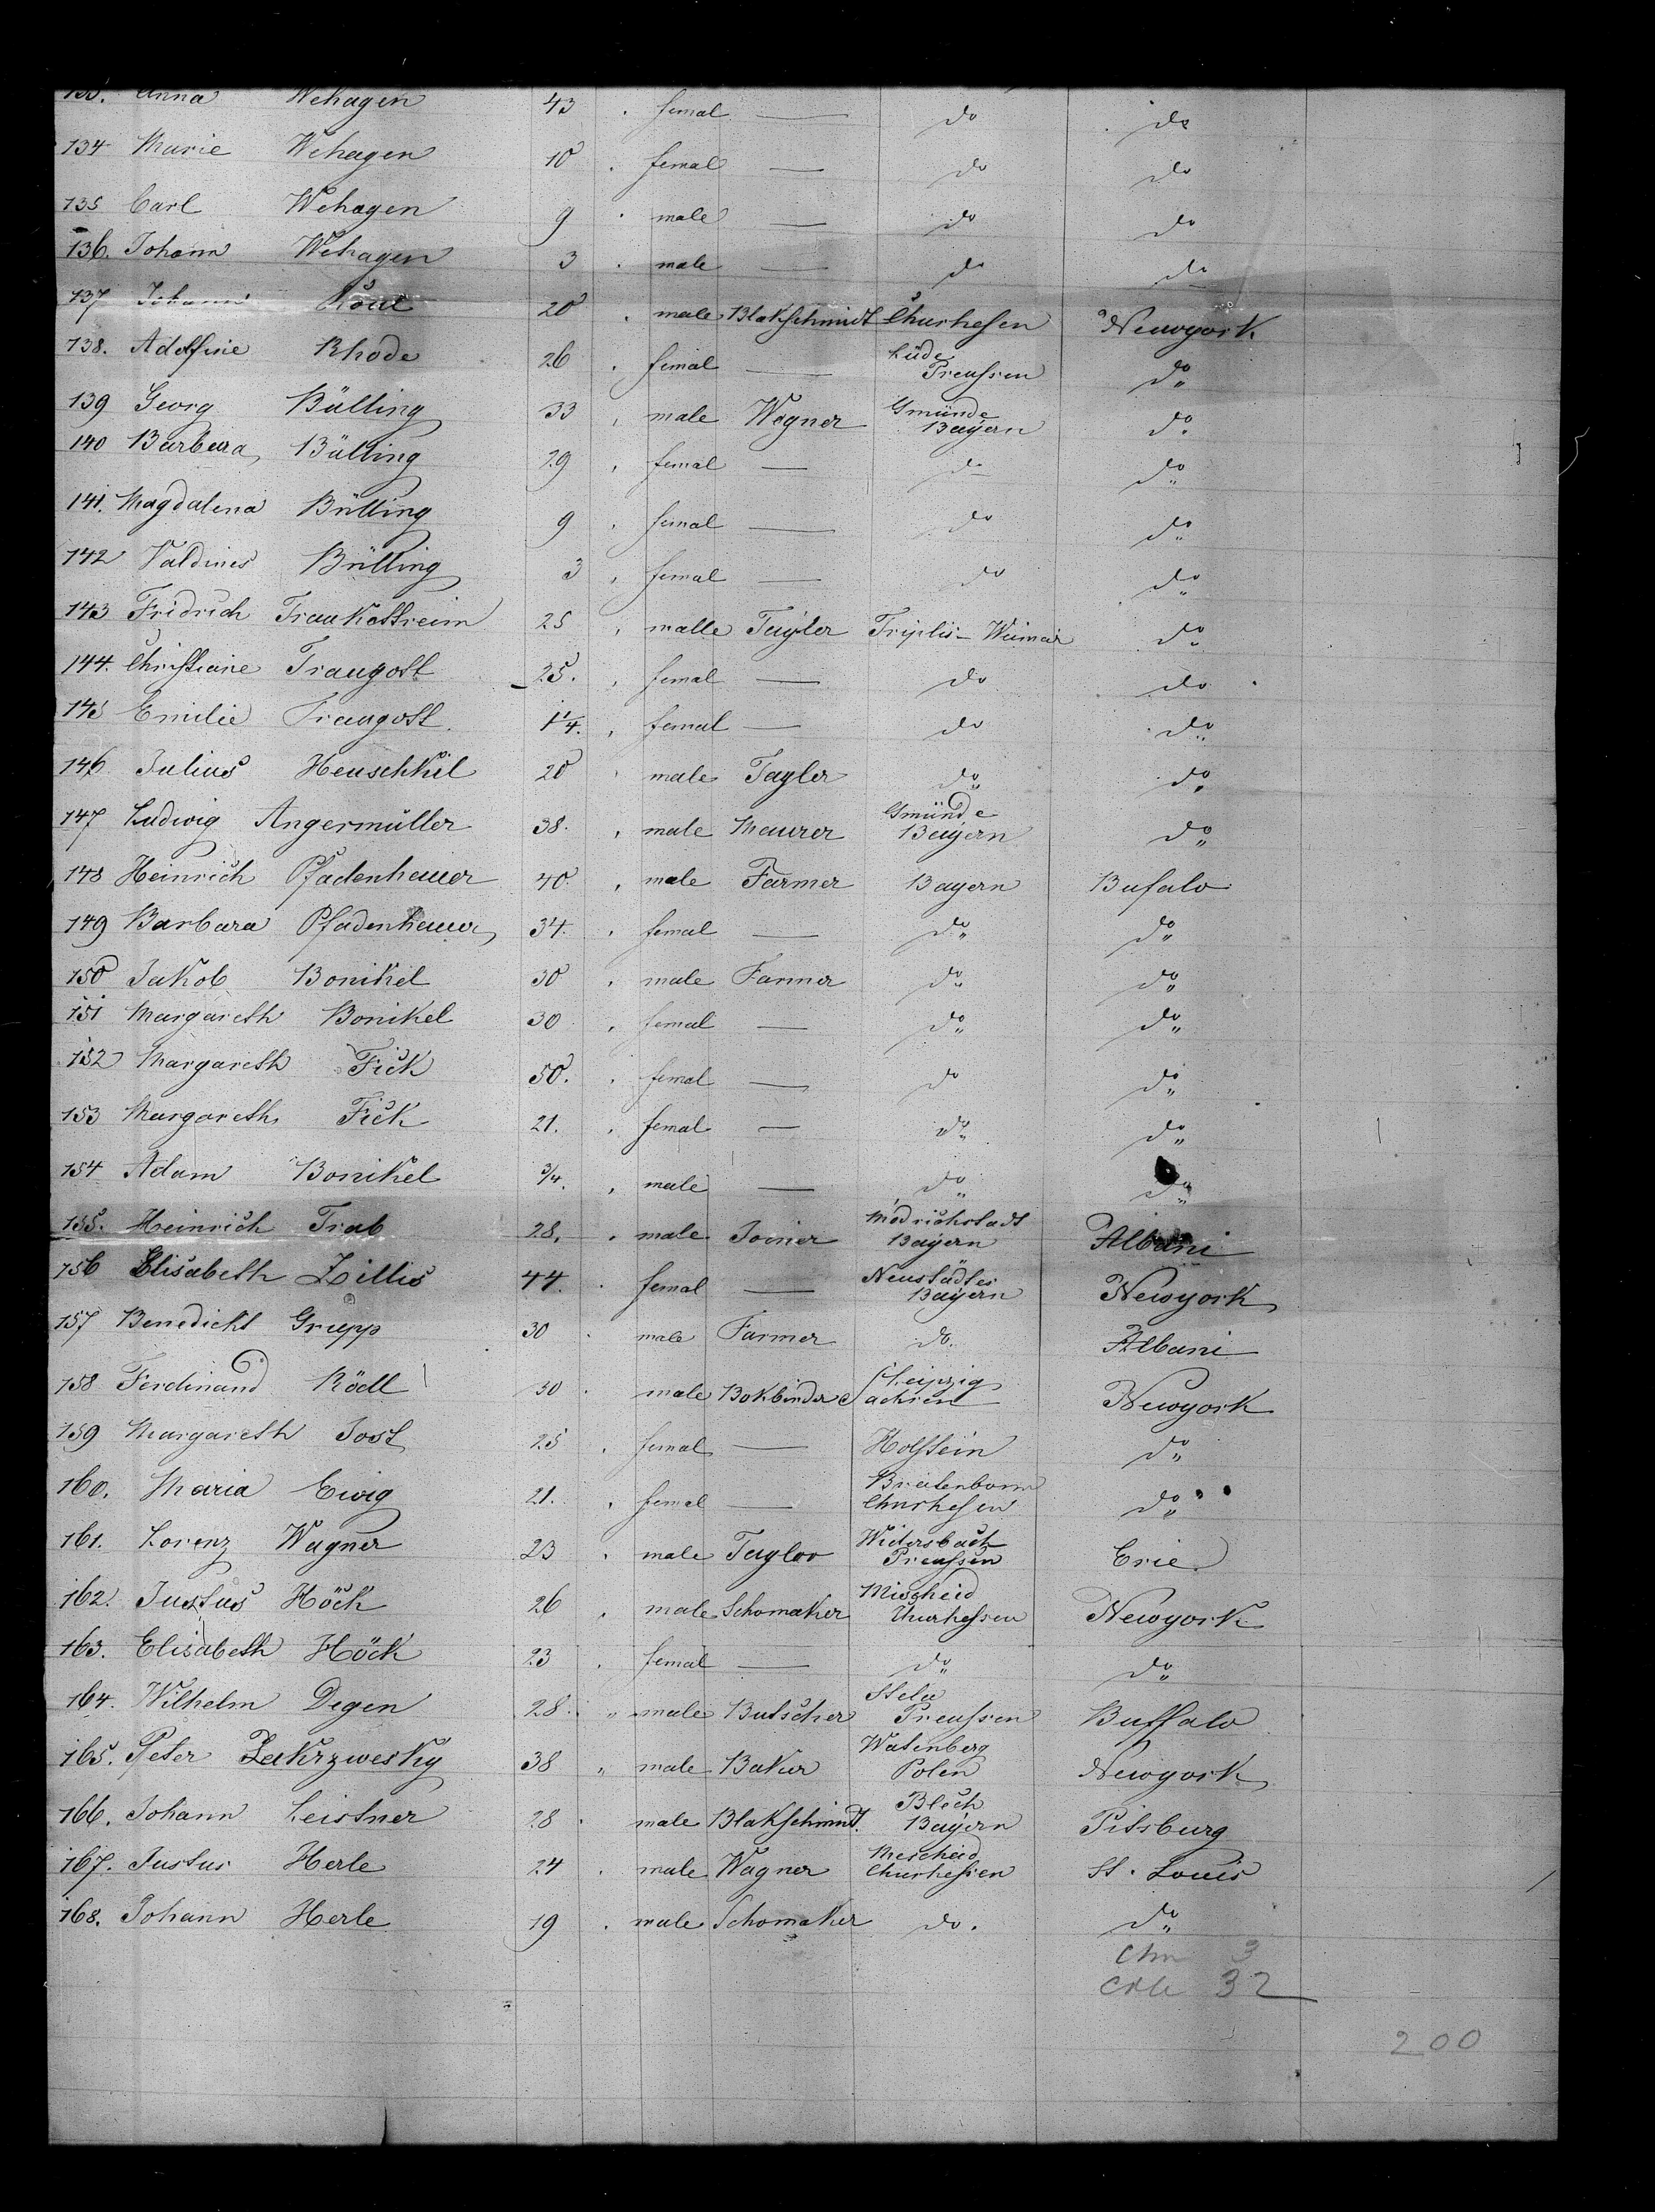 133. Anna Wehagen 43 femal — do do
134 Marie Wehagen 10 femal — do do
135 Carl Wehagen 9 male — do do
136. Johann Wehagen 3 male — do do
137 Johann 20 male Blakschmidt Churhessen Newyork
138. Adolfine Rhode 26 femal — Lüde Preussen do
139 Georg Bülling 33 male Wegner Gmünde Bayern do
140 Barbara Bülling 29 femal — do do
141. Magdalena Bülling 9 femal — do do
142 Valdines Bülling 3 femal — do do
143 Fridrich 25 malle Tayler Triplis - Weimar do
144. Christiane Traugott 25. femal — do do
145 Emilie Traugott 1 1/4. femal — do do
146 Julius Heuschkil 20 male Tayler do do
147 Ludwig Angermüller 38. male Maurer Gmünde Bayern do
148 Heinrich Pfadenhauer 40. male Farmer Bayern Bufalo
149 Barbara Pfadenhauer 34. femal — do do
150 Jakob Bonikel 30 male Farmer do do
151 Margareth Bonikel 30 femal — do do
152 Margareth Fick 50. femal — do do
153 Margareth Fick 21. femal — do do
154 Adam Bonikel 3/4. male — do do
155. Heinrich Trab 28. male Joiner Modrichstadt Bayern Albani
156 Elisabeth Zillis 44. femal — Neustädtes Bayern Newyork
157 Benedickt Grupp 30 male Farmer do. Albani
158 Ferdinand Rödl 30 male Bokbinder Leipzig Sachsen Newyork
159 Margareth Jost 25 femal — Holstein do
160. Maria Ewig 21. femal — Breitenborn Churhessen do
161. Lorenz Wagner 23 male Taylor Witersbach Preussen Erie
162. Justus Höck 26 male Schomaker Mischeid Churhessen Newyork
163. Elisabeth Höck 23 femal — do do
164. Wilhelm Degen 28. male Butscher Stela Preussen Buffalo
165. Peter Zakrzwesky 38 male Baker Watenberg Polen Newyork
166. Johann Leistner 28 male Blakschmidt. Blech Bayern Pitsburg
167. Justus Herle 24 male Wagner Mescheid Churhessen St. Louis
168. Johann Herle 19 male Schomaker do. do
3
32
200